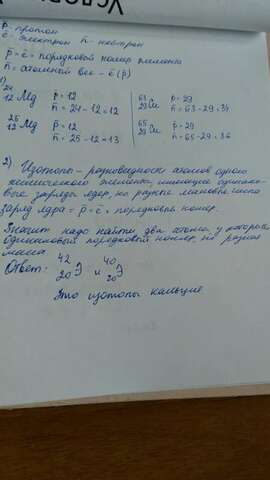 УСЛОВИ
p - протон
ē - электрон n - нейтрон
p = ē = порядковый номер элемента
n = атомный вес - ē (p)
1)
24 12 Mg p = 12 63 29 Cu p = 29
n = 24 - 12 = 12 n = 63 - 29 = 34
25 12 Mg p = 12 65 29 Cu p = 29
n = 25 - 12 = 13 n = 65 - 29 = 36
2) Изотопы - разновидности атомов одного
химического элемента, имеющие одинако-
вые заряды ядер, но разные массовые числа
заряд ядра = p = ē = порядковый номер.
Значит надо найти два атома у которых
одинаковый порядковый номер, но разная
масса.
Ответ: 42 20 Э и 40 20 Э
Это изотопы кальция.